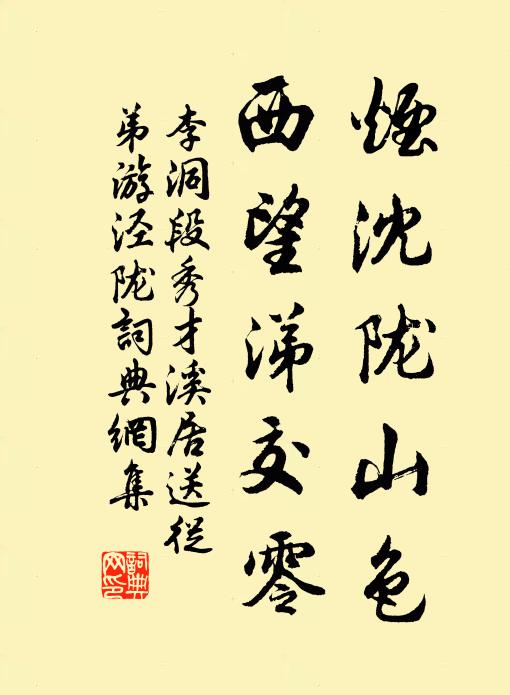 煙沈陇山色
西望涕交零
李洞段秀才溪居送從
弟游泾陇詞典網集
詞典网印